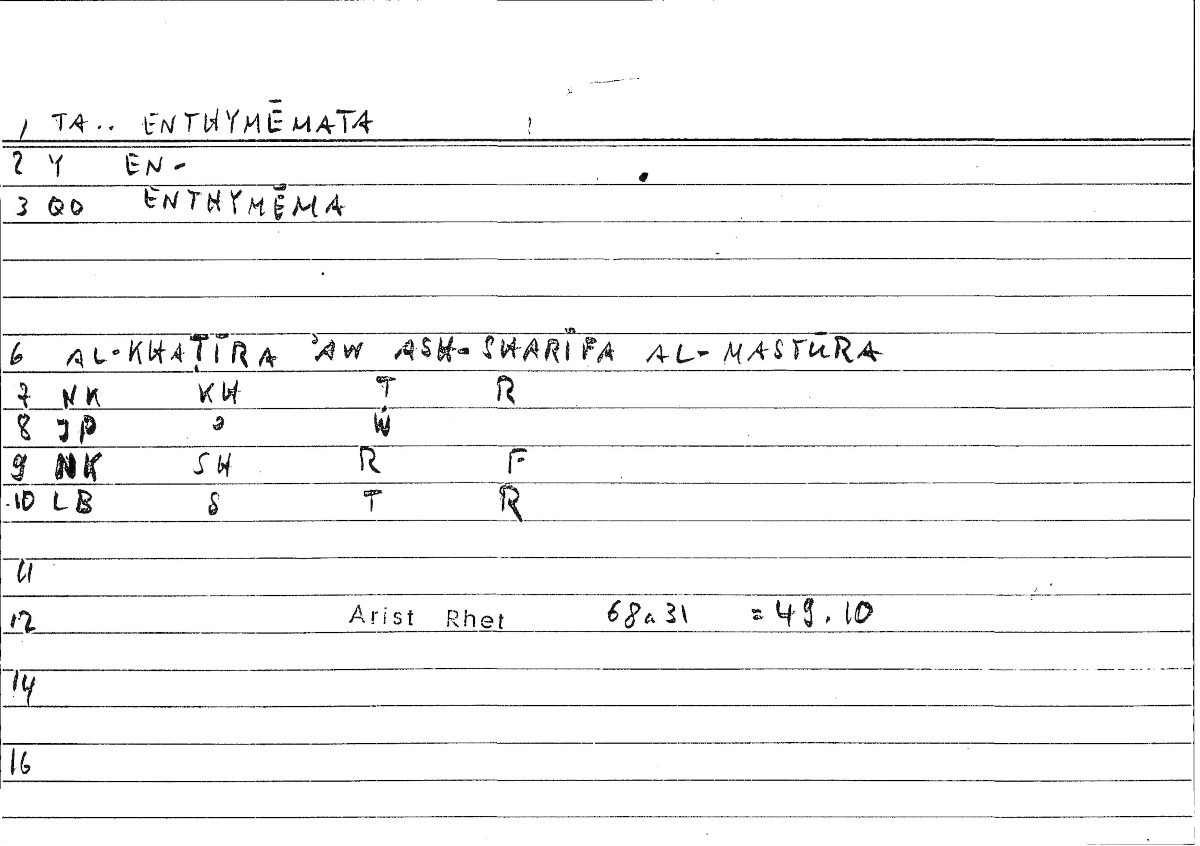 1 TA.. ENTHYMĒMATA
2 Y EN-
3 QO ENTHYMĒMA
6 AL-KHAṬĪRA ʾAW ASH-SHARĪFA AL-MASTŪRA
7 NK KH Ṭ R
8 JP ʾ W
9 NK SH R F
10 LB S T R
11
12 Arist Rhet 68a31 = 49.10
14
16